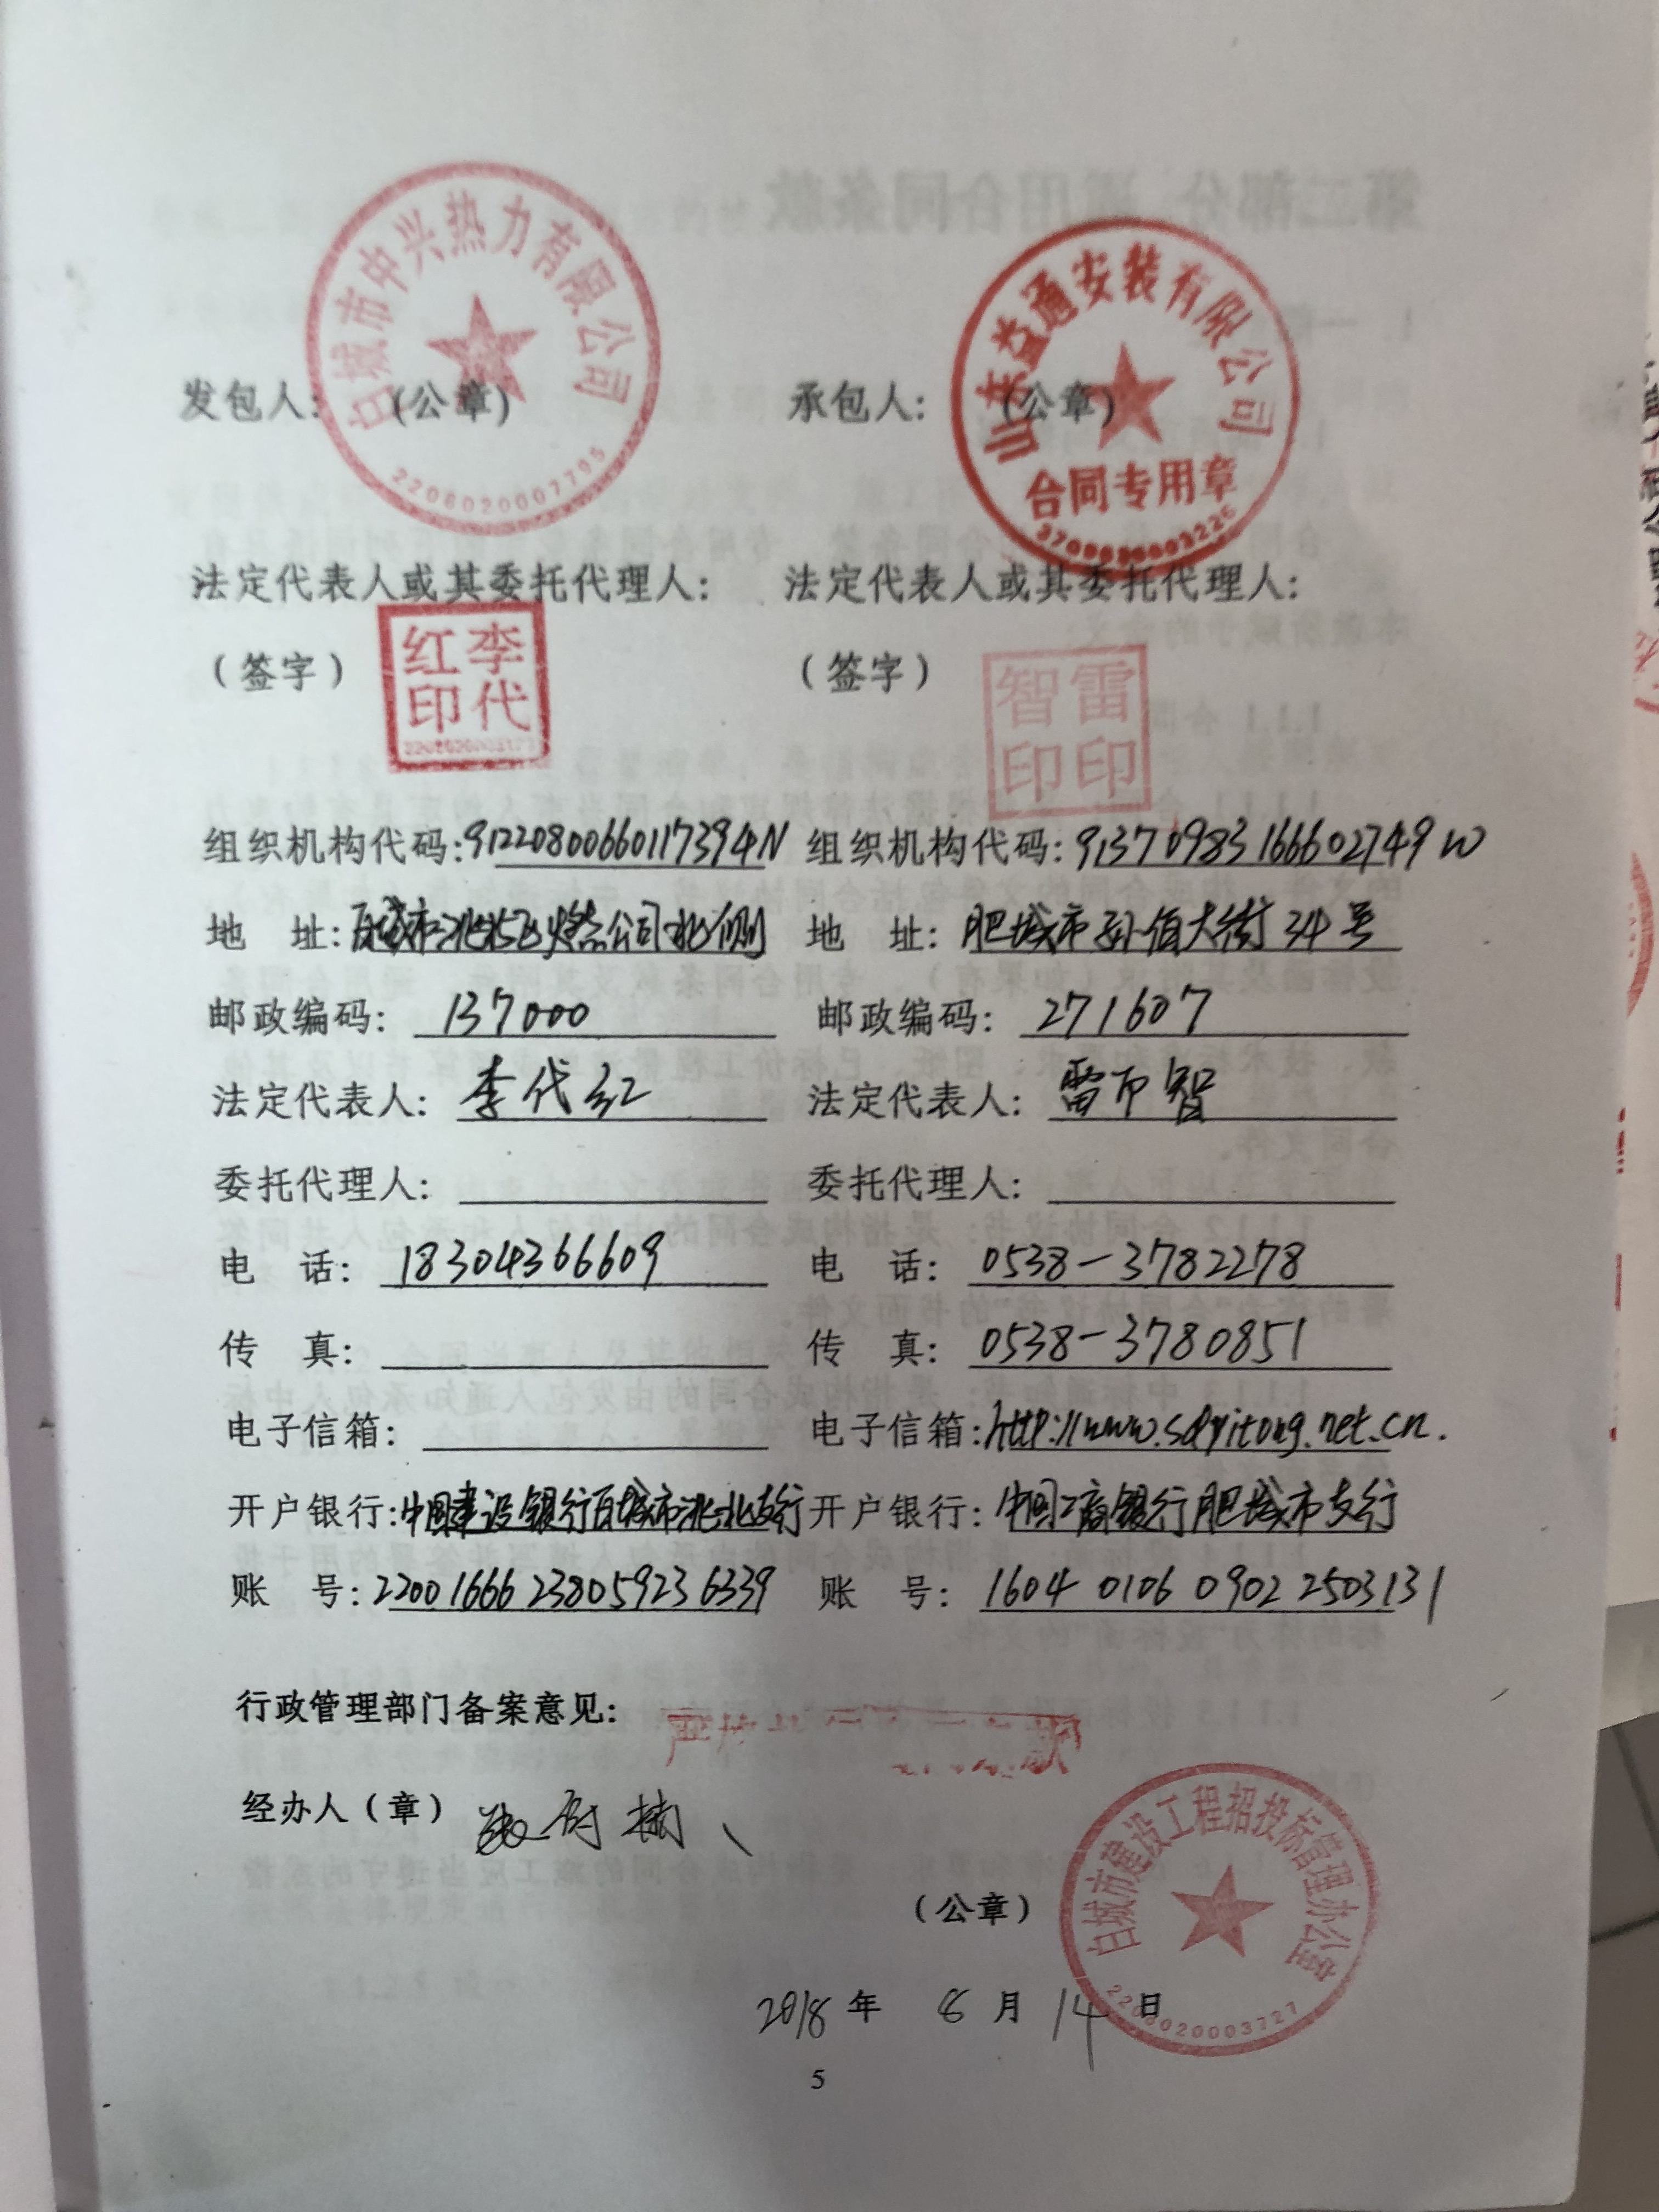 白城市中兴热力有限公司
2208020007795
山东益通安装有限公司
合同专用章
发包人： （公章） 承包人： （公章）
法定代表人或其委托代理人： 法定代表人或其委托代理人：
（签字） 李代红印 （签字） 雷智印印
组织机构代码：91220800660117394N 组织机构代码：91370983166602749W
地 址：白城市洮北区燃公司北侧 地 址：肥城市孙伯大街34号
邮政编码：137000 邮政编码：271607
法定代表人：李代红 法定代表人：雷印智
委托代理人： 委托代理人：
电 话：18304366609 电 话：0538-3782278
传 真： 传 真：0538-3780851
电子信箱： 电子信箱：http://www.sdyitong.net.cn.
开户银行：中国建设银行白城市洮北支行 开户银行：中国工商银行肥城市支行
账 号：22001666238059236339 账 号：1604 0106 0902 2503131
行政管理部门备案意见：
经办人（章）
白城市建设工程招投标管理办公室
（公章）
2018年 8月14日
2208020003727
5